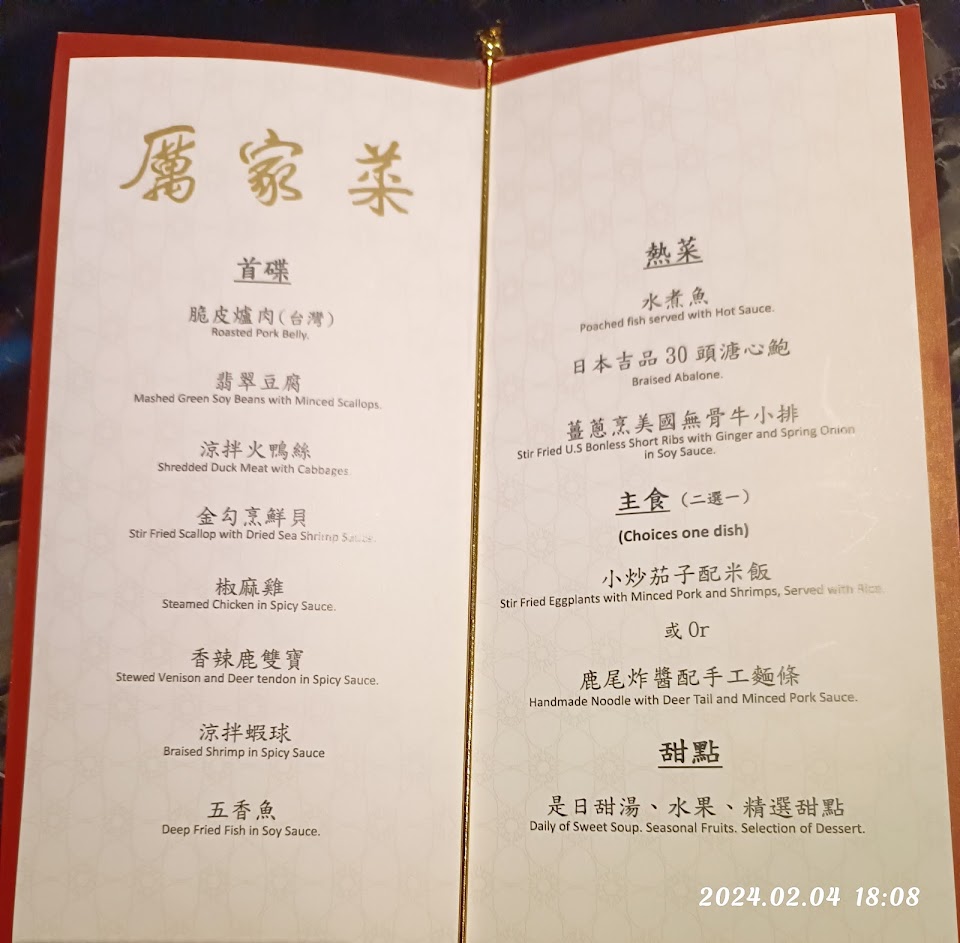 厲家菜
首碟
脆皮爐肉(台灣)
Roasted Pork Belly.
翡翠豆腐
Mashed Green Soy Beans with Minced Scallops.
涼拌火鴨絲
Shredded Duck Meat with Cabbages.
金勾烹鮮貝
Stir Fried Scallop with Dried Sea Shrimp Sauce.
椒麻雞
Steamed Chicken in Spicy Sauce.
香辣鹿雙寶
Stewed Venison and Deer tendon in Spicy Sauce.
涼拌蝦球
Braised Shrimp in Spicy Sauce
五香魚
Deep Fried Fish in Soy Sauce.
熱菜
水煮魚
Poached fish served with Hot Sauce.
日本吉品 30 頭溏心鮑
Braised Abalone.
薑蔥烹美國無骨牛小排
Stir Fried U.S Bonless Short Ribs with Ginger and Spring Onion
in Soy Sauce.
主食 (二選一)
(Choices one dish)
小炒茄子配米飯
Stir Fried Eggplants with Minced Pork and Shrimps, Served with Rice.
或 Or
鹿尾炸醬配手工麵條
Handmade Noodle with Deer Tail and Minced Pork Sauce.
甜點
是日甜湯、水果、精選甜點
Daily of Sweet Soup. Seasonal Fruits. Selection of Dessert.
2024.02.04 18:08